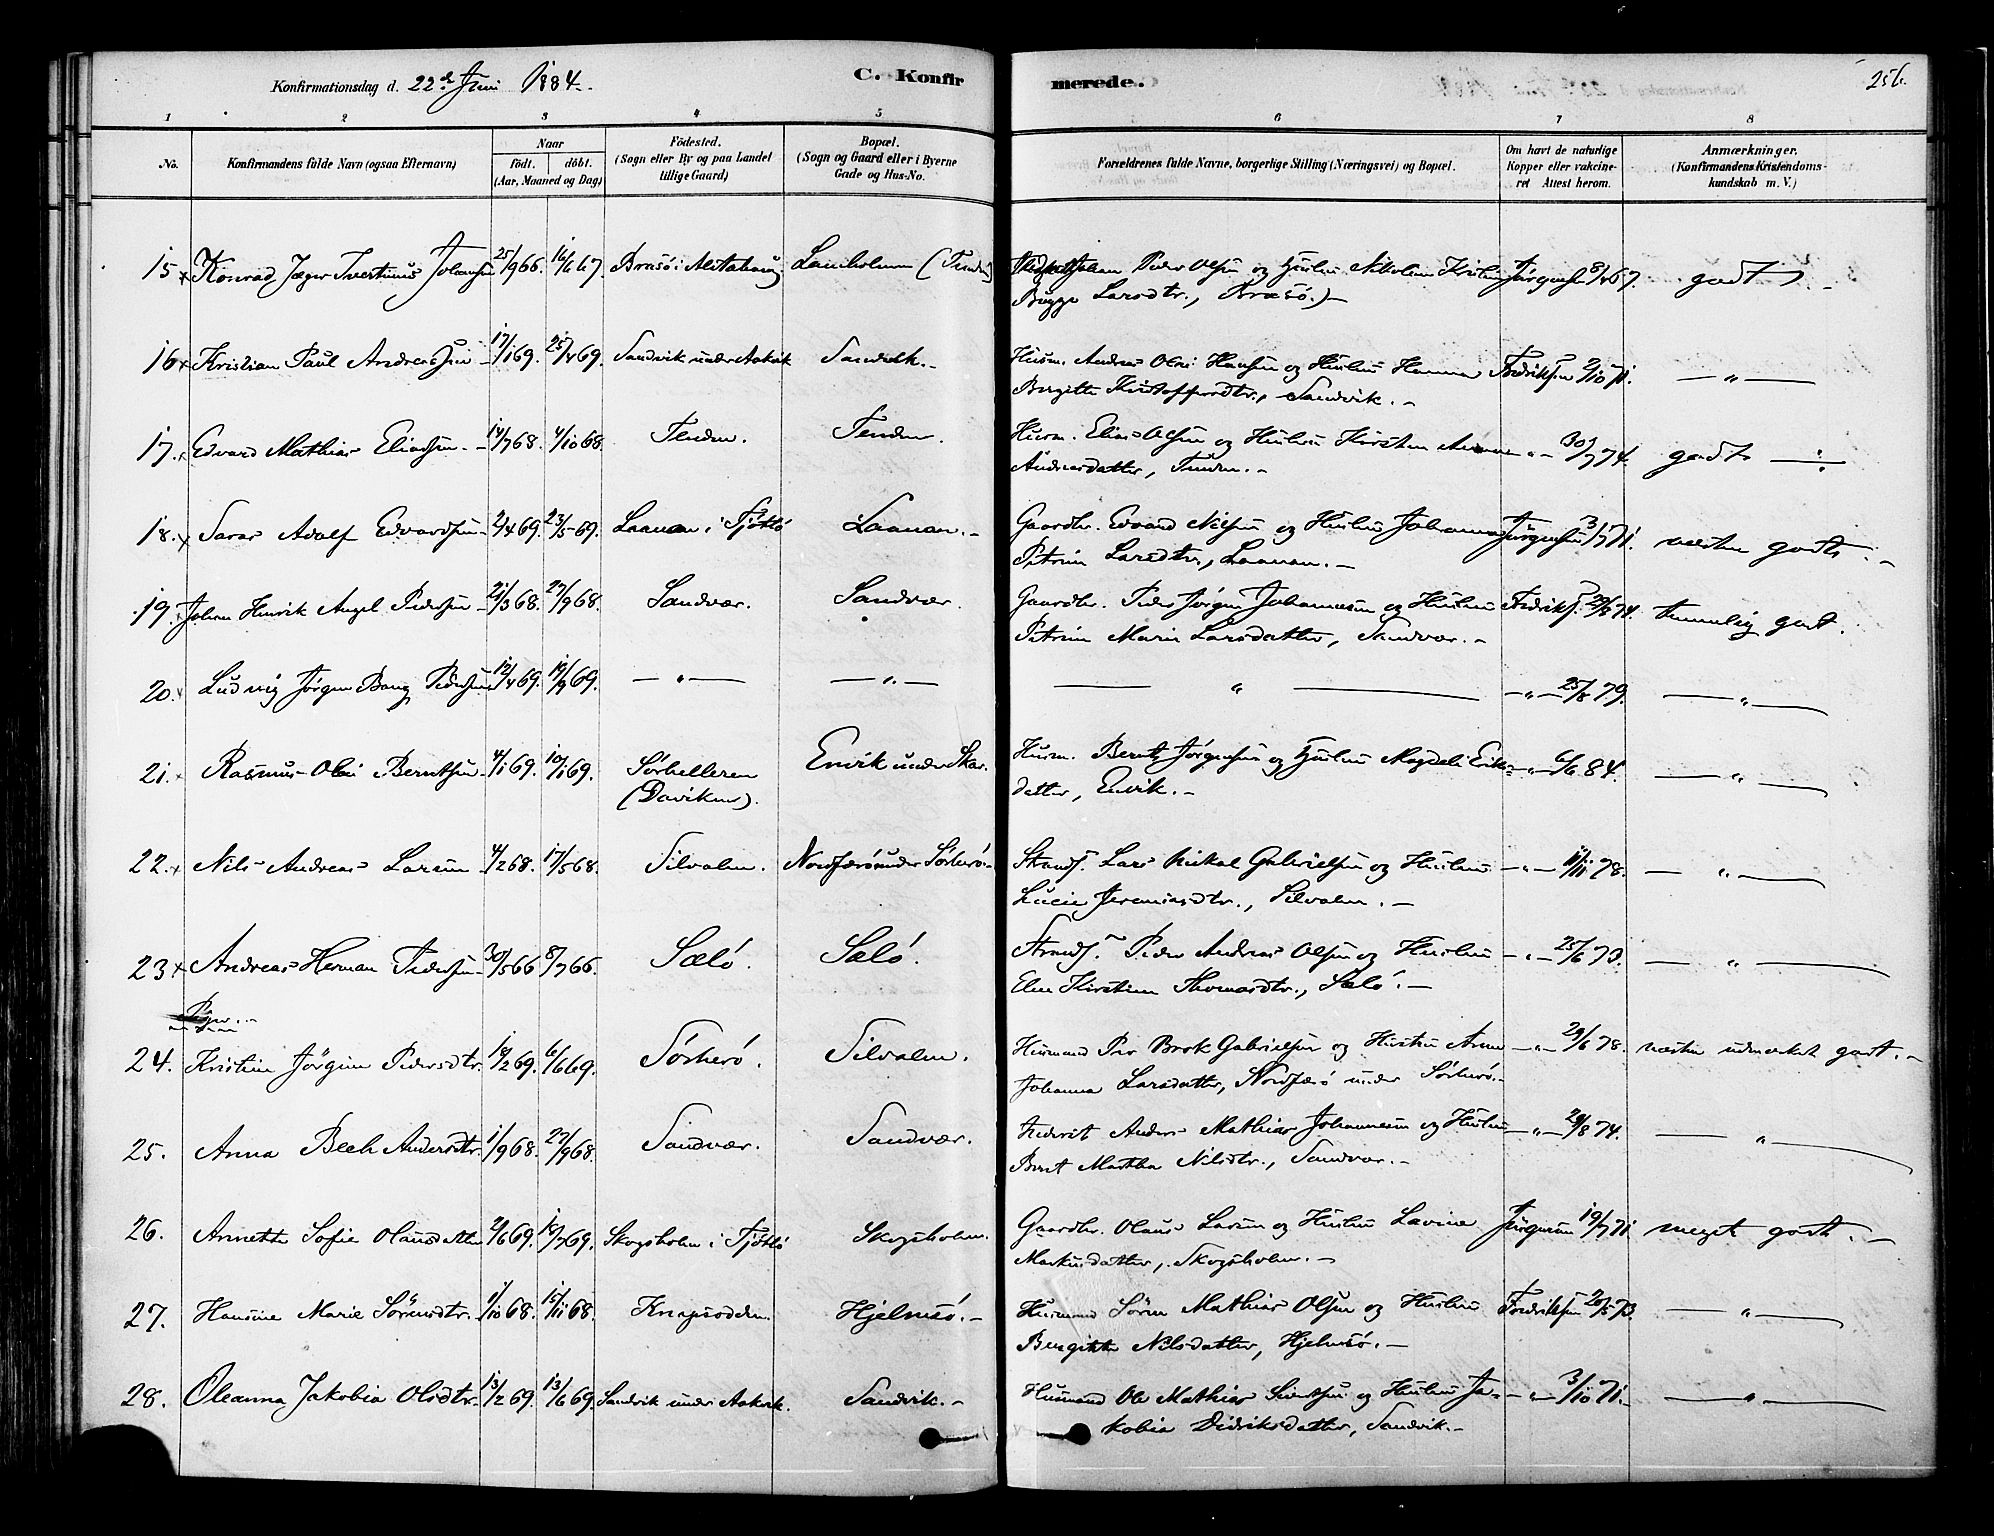 Konfirmationsdag d. 22de Juni 1884.
C. Konfir
merede.
256.
1 2 3 4 5 6 7 8
No.
Konfirmandens fulde Navn (ogsaa Efternavn)
Naar
födt. döbt.
(Aar, Maaned og Dag)
Födested.
(Sogn eller By og paa Landet
tillige Gaard)
Bopæl.
(Sogn og Gaard eller i Byerne
Gade og Hus-No.
Forældrenes fulde Navne, borgerlige Stilling (Næringsvei) og Bopæl.
Om havt de naturlige
Kopper eller vakcine-
ret Attest herom.
Anmærkninger.
(Konfirmandens Kristendoms-
kundskab m. V.)
15 x Konrad Jæger Johansen 25/9 66. 16/6 67. Brasö i Alstahaug Peder Olsen og Hustru Nikoline Jörgensen 8/4 67. godt
Bugge Larsdtr., Brasö.) -
16 x Kristian Paul Andreassen 17/1 69. 25/4 69. Sandvik under Aakvik Sandvik. - Husm. Andreas Olai Hansen og Hustru Hanna Fredriksen 2/10 71. - " -
Birgitte Kristoffersdtr., Sandvik. -
17. x Edvard Mathias Eliassen. - 14/7 68. 4/10 68. Tenden. Tenden. Husm. Elias Olsen og Hustru Kirsten Anna - " - 30/7 74. godt - " -
Andreasdatter, Tenden. -
18. x Adolf Edvardsen 2/4 69. 23/5 69. Laanan i Tjöttö Laanan. - Gaardbr. Edvard Nilsen og Hustru Johanna Jörgensen 3/7 71. næsten godt. -
Petrine Larsdtr., Laanan. -
19. x Johan Henrik Angel Pedersen 21/3 68. 27/9 68. Sandvær. Sandvær. Gaardbr. Peder Jörgen Johannesen og Hustru Fredriks. 29/8 74. temmelig godt.
Petrine Marie Larsdatter, Sandvær. -
20. x Ludvig Jörgen Bang Pedersen 12/4 69. 19/9 69. - " - - " - - " - - " - 25/8 79. - " -
21. x Rasmus Olai Berntsen 4/1 69. 10/1 69. Sörhelleren Envik under Skar. Husm. Bernt Jörgensen og Hustru Magdeli Erik- - " - 6/6 84. - " -
(Daviken). datter, Envik. -
22. x Nils Andreas Larsen 4/2 68. 17/5 68. Silvalen. Nordfærö under Sörherö. - Strands. Lars Mikal Gabrielsen og Hustru - " - 11/11 78. - " -
Lucie Jeremiasdtr., Silvalen. -
23 x Andreas Herman Pedersen 30/5 66 8/7 66. Sælö. Sælö. Strands. Peder Andreas Olsen og Hustru - " - 25/6 73. - " -
Elen Kirstine Thomasdtr., Sælö. -
Piger. -
24. Kristine Jörgine Pedersdtr. 18/2 69. 6/6 69. Sörherö. Silvalen. Husmand Per Brok Gabrielsen og Hustru Anne - " - 29/6 78. næsten udmærket godt. -
Johanna Larsdatter, Nordfærö under Sörherö. -
25. Anna Bech Andersdtr. 1/9 68. 27/9 68. Sandvær. Sandvær. Inderst Anders Mathias Johannesen og Hustru - " - 29/8 74. - " -
Berit Martha Nilsdtr., Sandvær. -
26. Annette Sofie Olausdatter 2/6 69. 18/7 69. Skogsholm i Tjöttö Skogsholm. Gaardbr. Olaus Larsen og Hustru Lavine Jörgensen 19/7 71 meget godt. -
Markusdatter, Skogsholm. -
27. Hansine Marie Sörensdtr. 1/10 68. 15/11 68. Knapsodden. Hjelmsö. - Husmand Sören Mathias Olsen og Hustru Fredriksen 26/5 73. - " -
Bergitte Nilsdatter, Hjelmsö. -
28. Oleanna Jakobia Olsdtr. 13/2 69. 13/6 69. Sandvik under Aakvik. Sandvik. - Husmand Ole Mathias Sivertsen og Hustru Ja- - " - 3/10 71. - " -
kobia Didriksdatter, Sandvik. -